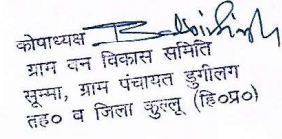 कोषाध्यक्ष
ग्राम वन विकास समिति
सूम्मा, ग्राम पंचायत डुगीलग
तह० व जिला कुल्लू (हि०प्र०)